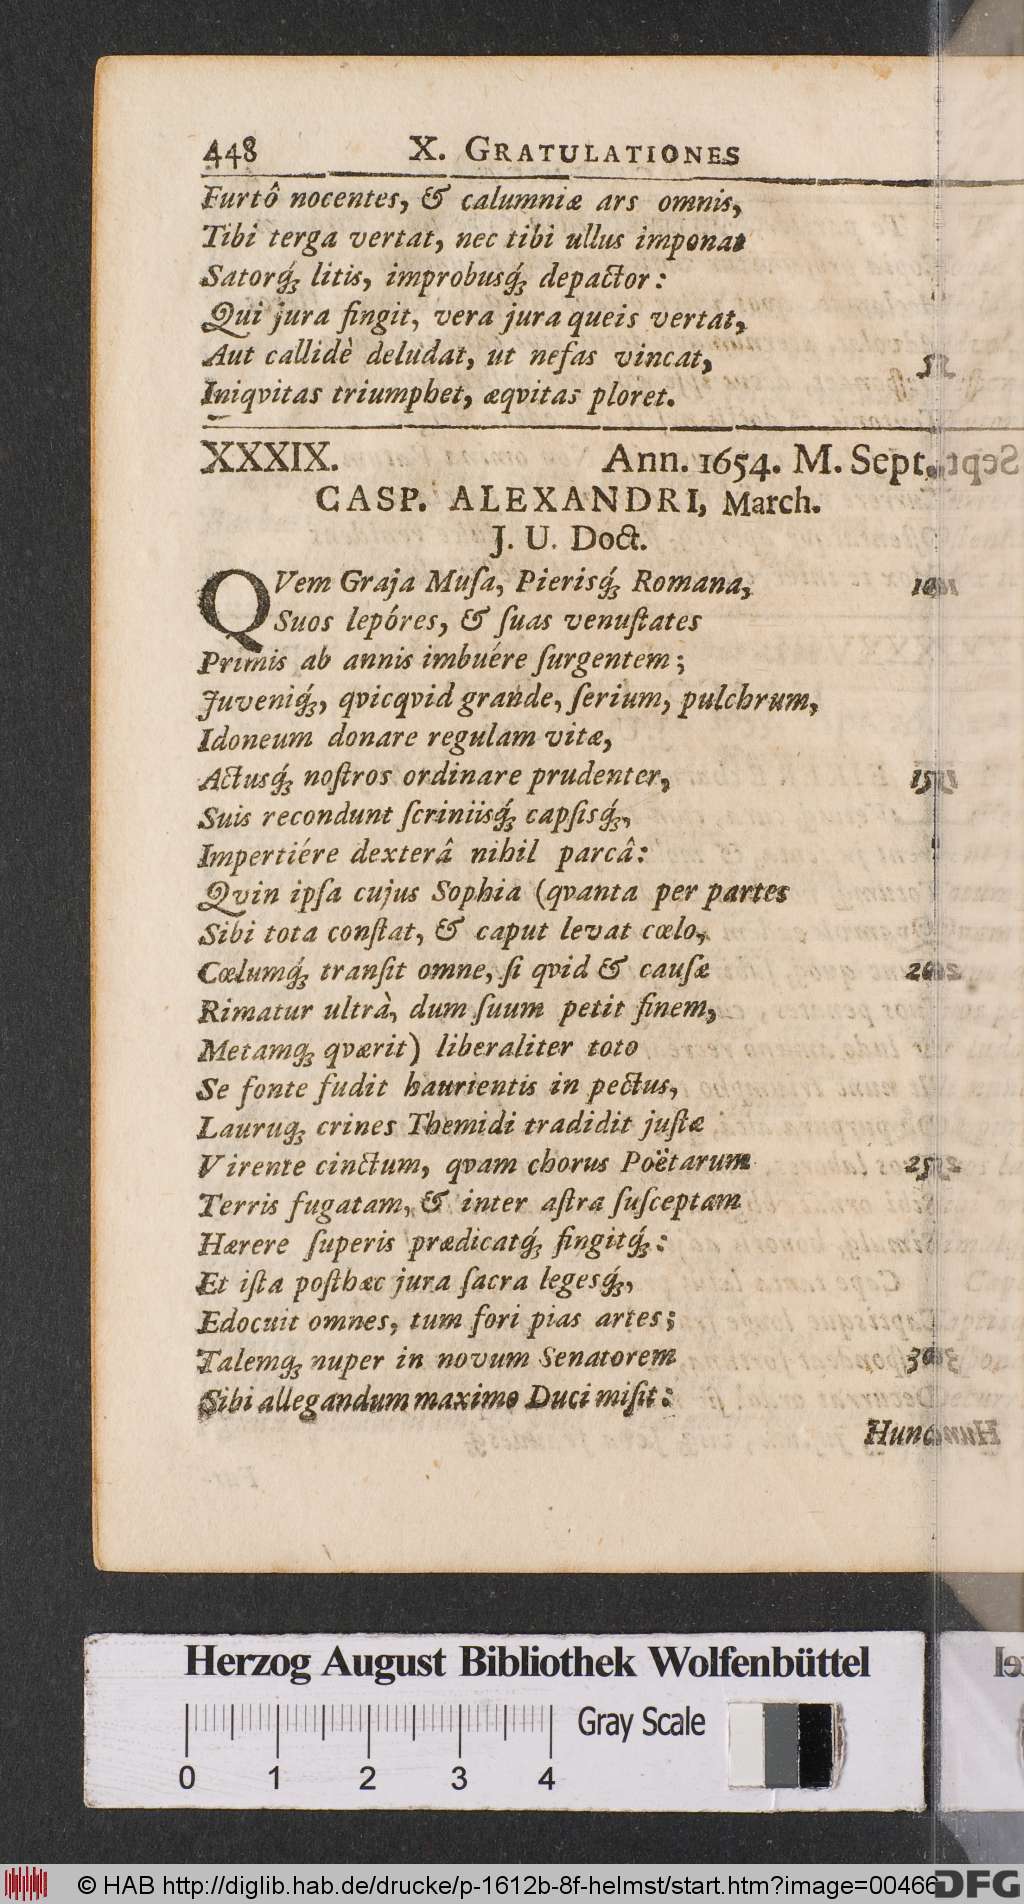 448 X. GRATULATIONES
Furtô nocentes, & calumniæ ars omnis,
Tibi terga vertat, nec tibi ullus imponat
Satorq́ꝫ litis, improbusq́ꝫ depactor:
Qui jura fingit, vera jura queis vertat,
Aut callidè deludat, ut nefas vincat,
Iniqvitas triumphet, æqvitas ploret.
XXXIX. Ann. 1654. M. Sept.
CASP. ALEXANDRI, March.
J. U. Doct.
QVem Graja Muſa, Pierisq́ꝫ Romana,
Suos lepóres, & ſuas venuſtates
Primis ab annis imbuére ſurgentem;
Juveniq́ꝫ, qvicqvid grande, ſerium, pulchrum,
Idoneum donare regulam vitæ,
Actusq́ꝫ noſtros ordinare prudenter, 15
Suis recondunt ſcriniisq́ꝫ capſisq́ꝫ,
Impertiére dexterâ nihil parcâ:
Qvin ipſa cujus Sophia (qvanta per partes
Sibi tota conſtat, & caput levat cœlo,
Cœlumq́ꝫ tranſit omne, ſi qvid & cauſæ
Rimatur ultrà, dum ſuum petit finem,
Metamqꝫ qværit) liberaliter toto
Se fonte fudit haurientis in pectus,
Lauruqꝫ crines Themidi tradidit juſtæ
Virente cinctum, qvam chorus Poëtarum 25
Terris fugatam, & inter aſtra ſuſceptam
Hærere ſuperis prædicatq́ꝫ fingitq́ꝫ:
Et iſta poſthæc jura ſacra legesq́ꝫ,
Edocuit omnes, tum fori pias artes;
Talemqꝫ nuper in novum Senatorem 30
Sibi allegandum maximo Duci miſit:
Hunc
Herzog August Bibliothek Wolfenbüttel
Gray Scale
0 1 2 3 4
© HAB http://diglib.hab.de/drucke/p-1612b-8f-helmst/start.htm?image=00466
DFG